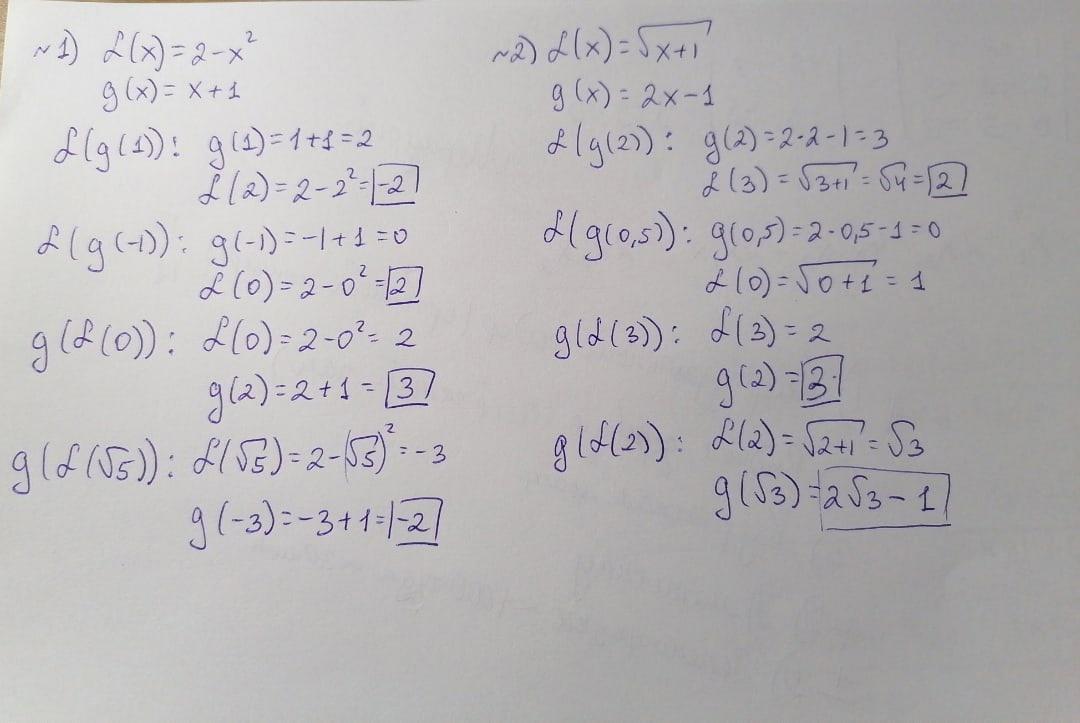 ~1) f(x)=2-x²
g(x)=x+1
f(g(1)): g(1)=1+1=2
f(2)=2-2²=-2
f(g(-1)): g(-1)=-1+1=0
f(0)=2-0²=2
g(f(0)): f(0)=2-0²=2
g(2)=2+1=3
g(f(√5)): f(√5)=2-(√5)²=-3
g(-3)=-3+1=-2
~2) f(x)=√x+1
g(x)=2x-1
f(g(2)): g(2)=2·2-1=3
f(3)=√3+1=√4=2
f(g(0,5)): g(0,5)=2·0,5-1=0
f(0)=√0+1=1
g(f(3)): f(3)=2
g(2)=3
g(f(2)): f(2)=√2+1=√3
g(√3)=2√3-1